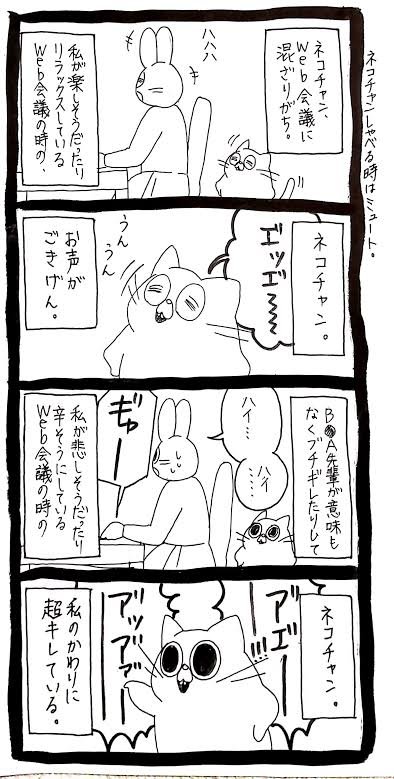 ネコチャンしゃべる時はミュート。
ネコチャン、
Web会議に
混ざりがち。
ハハハ
私が楽しそうだったり
リラックスしている
Web会議の時の、
ネコチャン。
エッエ〜〜
うんうん
お声が
ごきげん。
B●A先輩が意味も
なくブチギレしたりして
ハイ…
ハイ……
ギュー
私が悲しそうだったり
辛そうにしている
Web会議の時の
ネコチャン。
アエ
!!!
アッアァ
私のかわりに
超キレている。